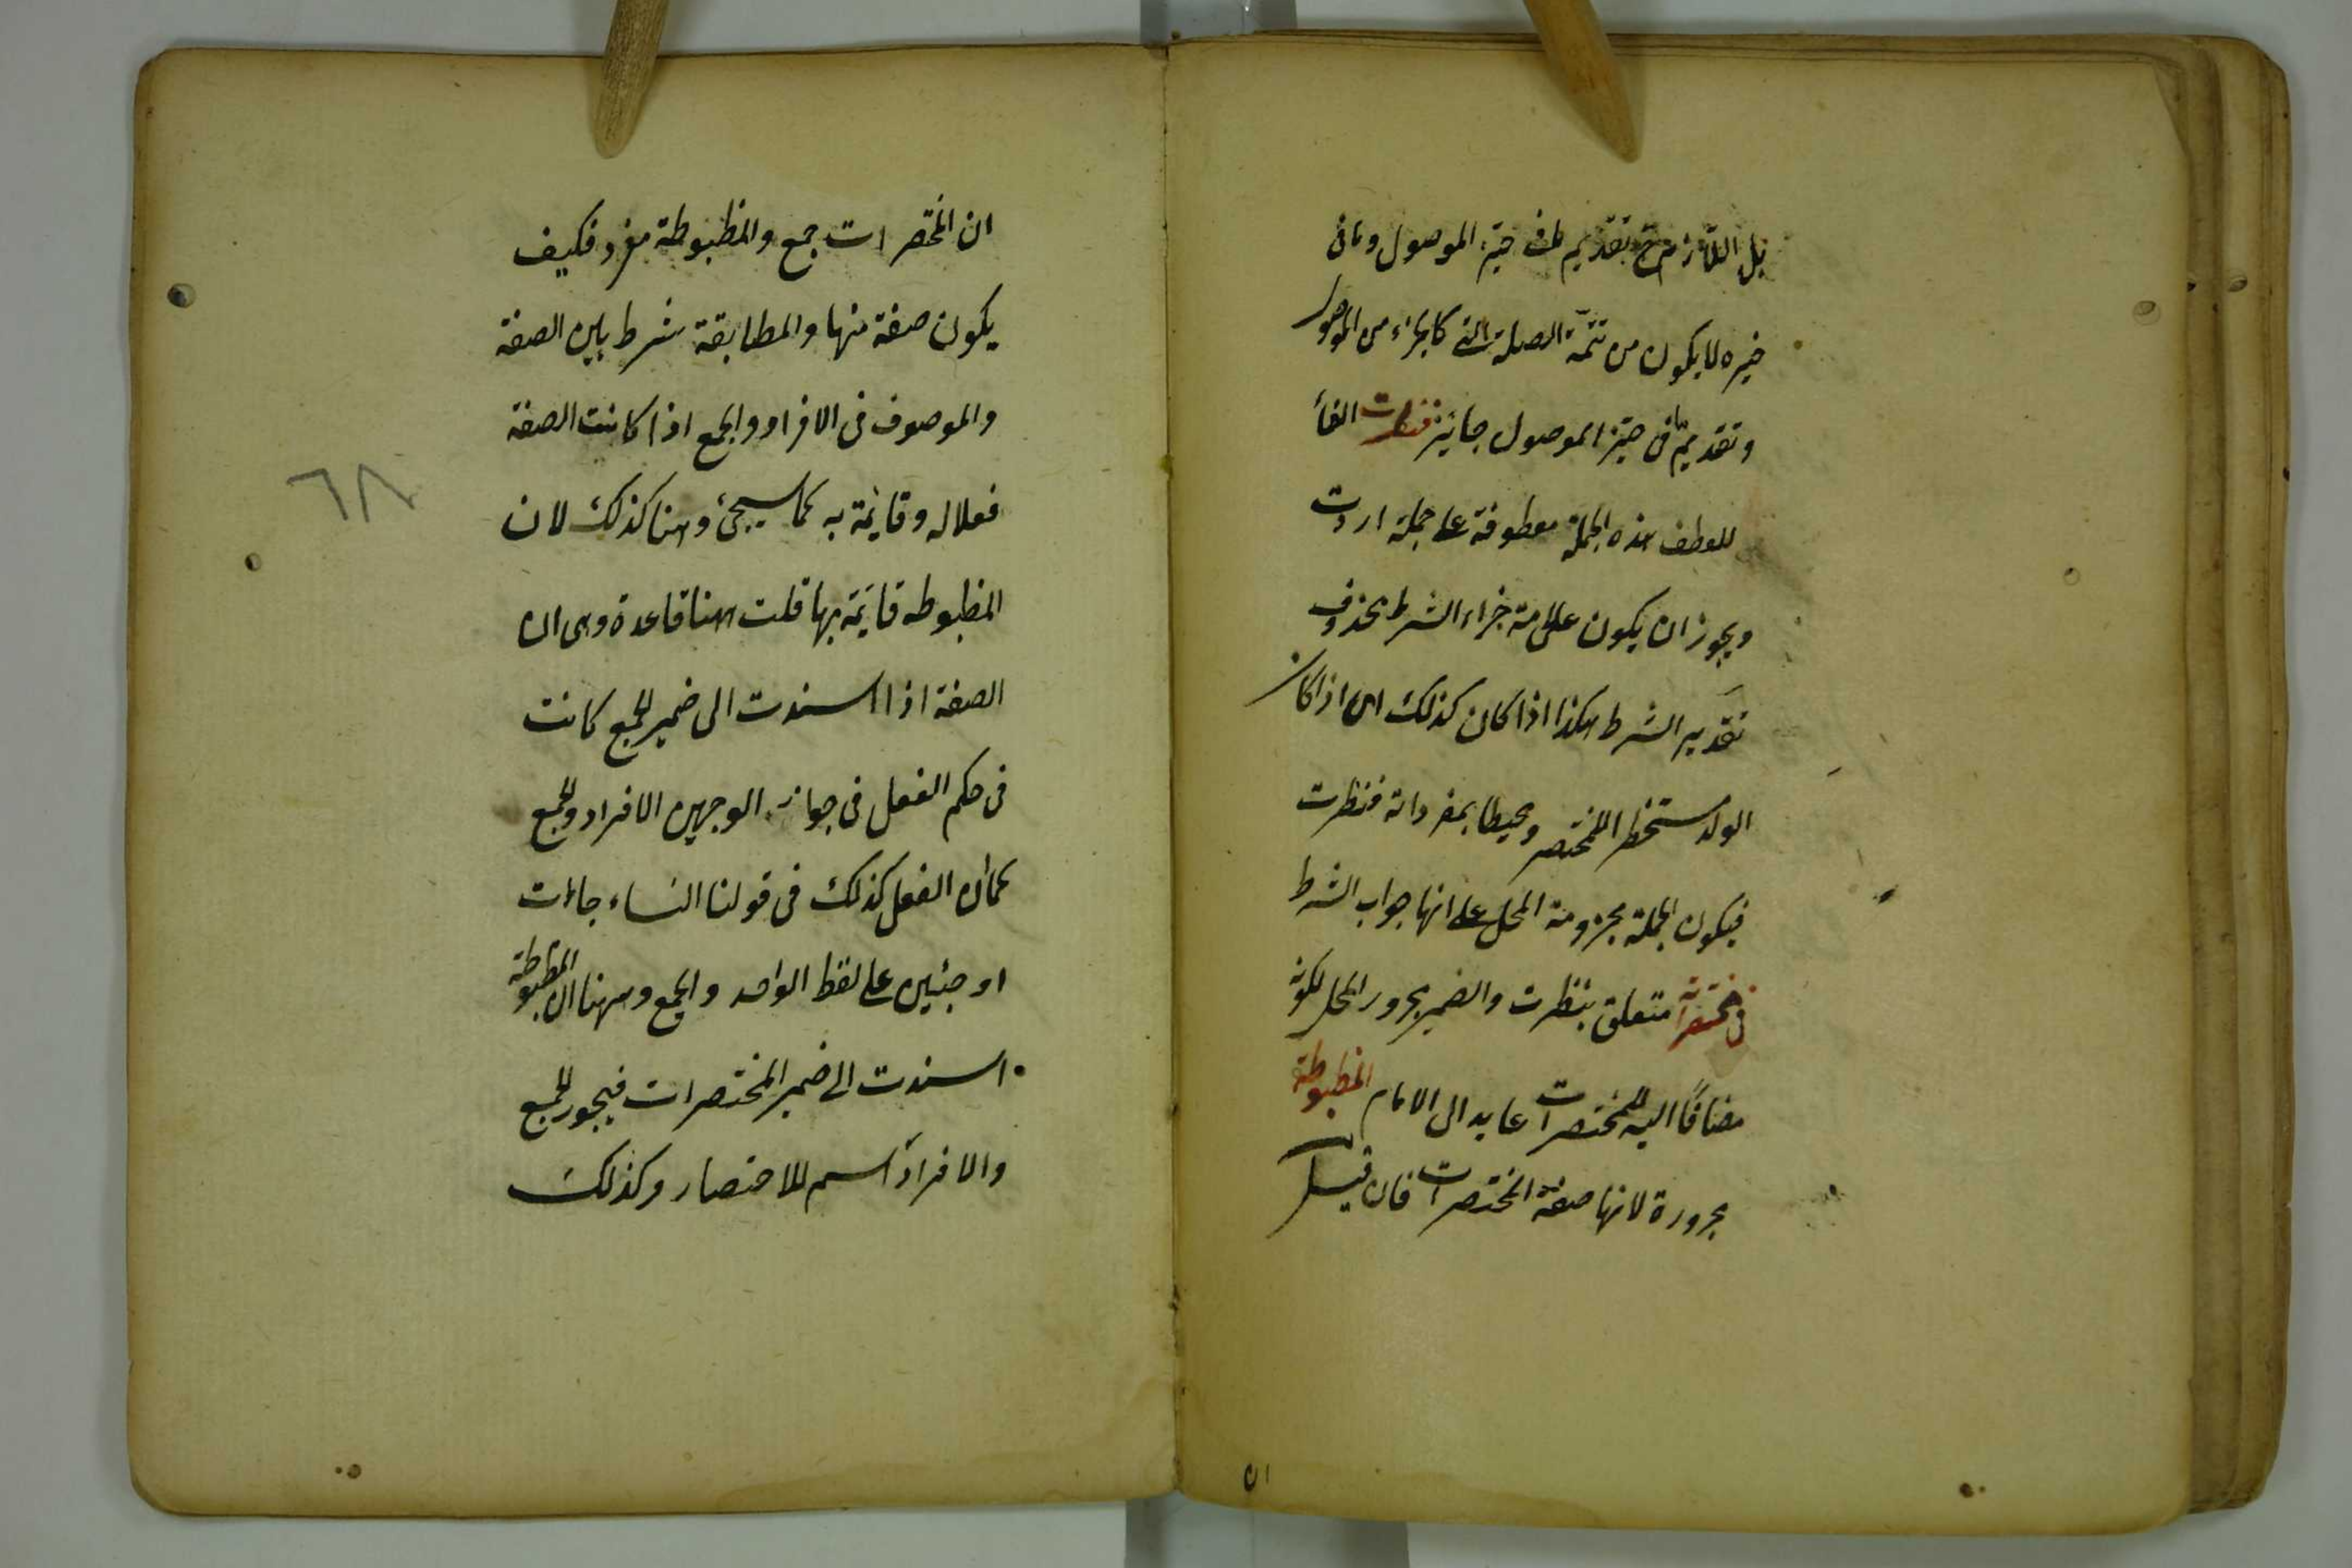 بل اللازم ح تقديم ما فى حيّز الموصول وما فى
خيره لا يكون من تتمّة الصلة التى كالجزاء من الموصول
وتقديم ما فى حيّز الموصول جائز فنظرت الفاء
للعطف هذه الجملة معطوفة على جملة اردت
ويجوز ان يكون علامة جزاء الشرط محذوف
تقدير الشرط هكذا اذا كان كذلك اى اذا كان
الولد مستحظر اللمختصر ومحيطا بمفرداته فنظرت
فيكون الجملة مجزومة المحل على انها جواب الشرط
فى مختصراته متعلق بنظرت والضمير مجرور المحل لكونه
مضافًا اليه للمختصرات عايد الى الامام المظبوطة
مجرورة لانها صفة المختصرات فان قيل
ان
ان المختصرات جمع والمظبوطة مفرد فكيف
يكون صفة منها والمطابقة شرط بين الصفة
والموصوف فى الافراد والجمع اذا كانت الصفة
فعلا له وقائمة به كما سيجئ وهنا كذلك لان
المظبوطه قائمة بها قلت ههنا قاعدة وهى ان
الصفة اذا اسندت الى ضمير الجمع كانت
فى حكم الفعل فى جواز الوجهين الافراد والجمع
كما ان الفعل كذلك فى قولنا النساء جاءت
او جئين على لفظ الواحد والجمع وههنا ان المظبوطة
اسندت الى ضمير المختصرات فيجوز الجمع
والافراد اسم للاختصار وكذلك
٦٨